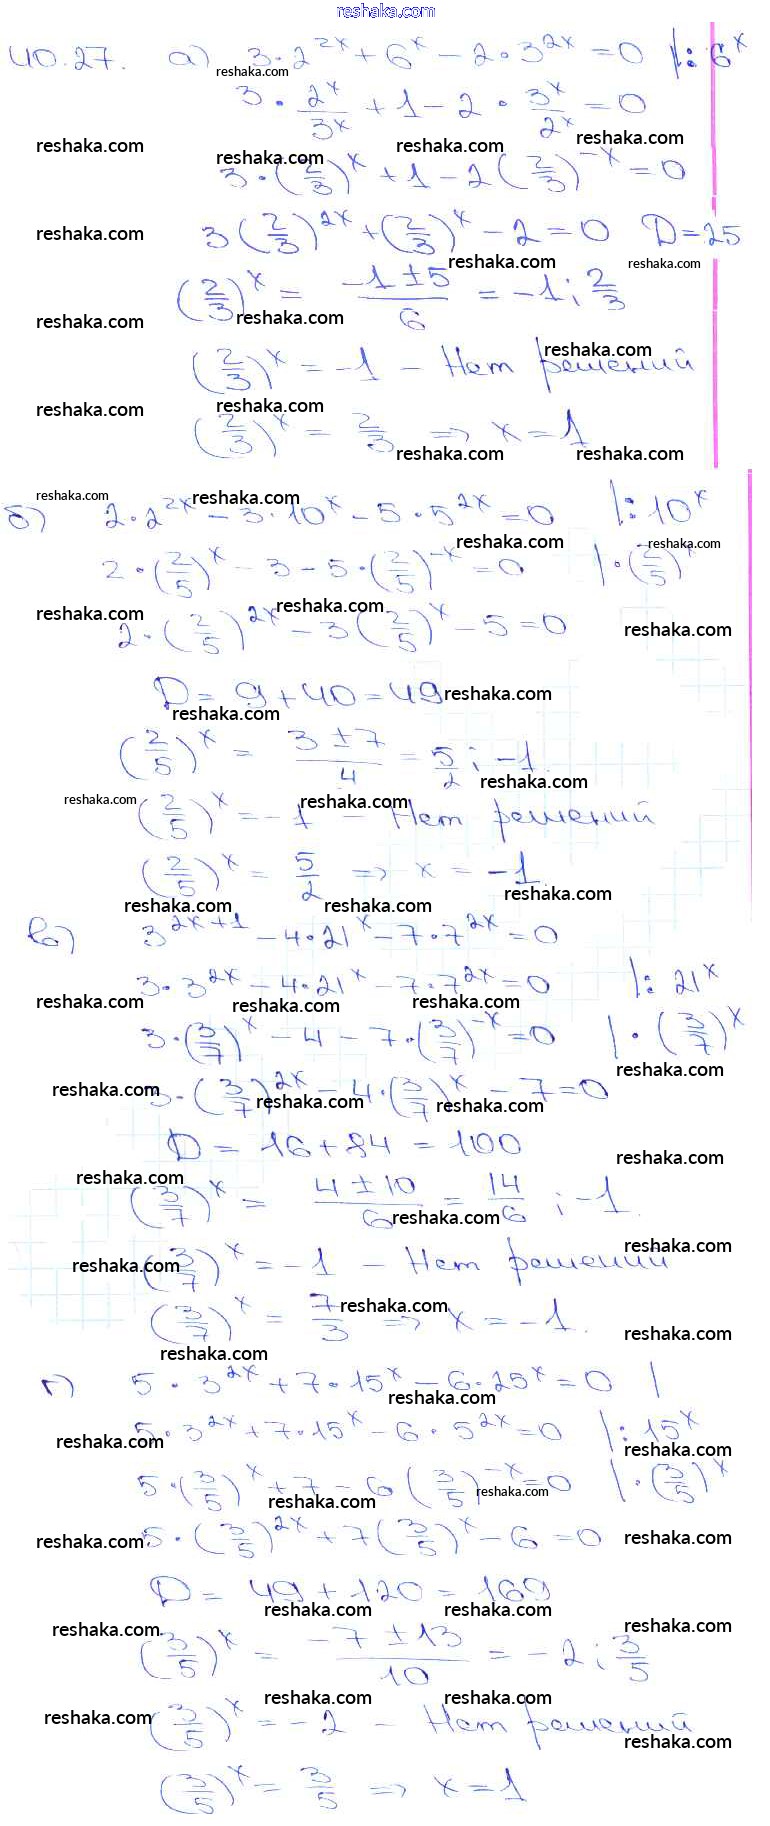 reshaka.com
40.27. а) 3·2^{2x} + 6^x − 2·3^{2x} = 0 |: 6^x
3·\frac{2^x}{3^x} + 1 − 2·\frac{3^x}{2^x} = 0
3·(\frac{2}{3})^x + 1 − 2(\frac{2}{3})^{−x} = 0
3(\frac{2}{3})^{2x} + (\frac{2}{3})^x − 2 = 0 D = 25
(\frac{2}{3})^x = \frac{−1 ± 5}{6} = −1; \frac{2}{3}
(\frac{2}{3})^x = −1 − Нет решений
(\frac{2}{3})^x = \frac{2}{3} ⇒ x = 1
б) 2·2^{2x} − 3·10^x − 5·5^{2x} = 0 |: 10^x
2·(\frac{2}{5})^x − 3 − 5·(\frac{2}{5})^{−x} = 0 |·(\frac{2}{5})^x
2·(\frac{2}{5})^{2x} − 3(\frac{2}{5})^x − 5 = 0
D = 9 + 40 = 49
(\frac{2}{5})^x = \frac{3 ± 7}{4} = \frac{5}{2}; −1.
(\frac{2}{5})^x = −1 − Нет решений
(\frac{2}{5})^x = \frac{5}{2} ⇒ x = −1.
в) 3^{2x+1} − 4·21^x − 7·7^{2x} = 0
3·3^{2x} − 4·21^x − 7·7^{2x} = 0 |: 21^x
3·(\frac{3}{7})^x − 4 − 7·(\frac{3}{7})^{−x} = 0 |·(\frac{3}{7})^x
3·(\frac{3}{7})^{2x} − 4·(\frac{3}{7})^x − 7 = 0
D = 16 + 84 = 100
(\frac{3}{7})^x = \frac{4 ± 10}{6} = \frac{14}{6}; −1.
(\frac{3}{7})^x = −1 − Нет решений
(\frac{3}{7})^x = \frac{7}{3} ⇒ x = −1.
г) 5·3^{2x} + 7·15^x − 6·25^x = 0 |
5·3^{2x} + 7·15^x − 6·5^{2x} = 0 |: 15^x
5·(\frac{3}{5})^x + 7 − 6(\frac{3}{5})^{−x} = 0 |·(\frac{3}{5})^x
5·(\frac{3}{5})^{2x} + 7(\frac{3}{5})^x − 6 = 0
D = 49 + 120 = 169
(\frac{3}{5})^x = \frac{−7 ± 13}{10} = −2; \frac{3}{5}
(\frac{3}{5})^x = −2 − Нет решений
(\frac{3}{5})^x = \frac{3}{5} ⇒ x = 1